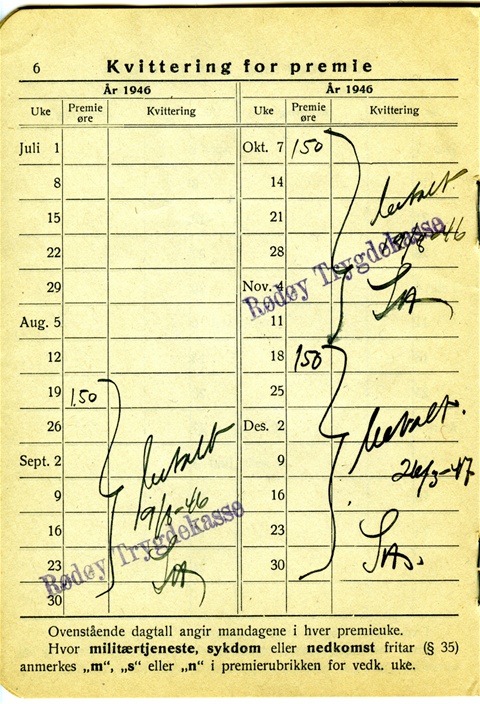 6 Kvittering for premie
År 1946 År 1946
Uke Premie øre Kvittering Uke Premie øre Kvittering
Juli 1 Okt. 7 150
8 14
15 21 betalt
22 28
29 Nov. 4 Rødøy Trygdekasse
Aug. 5 11
12 18 150
19 150 25
26 Des. 2 betalt.
Sept. 2 betalt 9
9 16
16 Rødøy Trygdekasse 23
23 30
30
Ovenstående dagtall angir mandagene i hver premieuke.
Hvor militærtjeneste, sykdom eller nedkomst fritar (§ 35)
anmerkes „m“, „s“ eller „n“ i premierubrikken for vedk. uke.